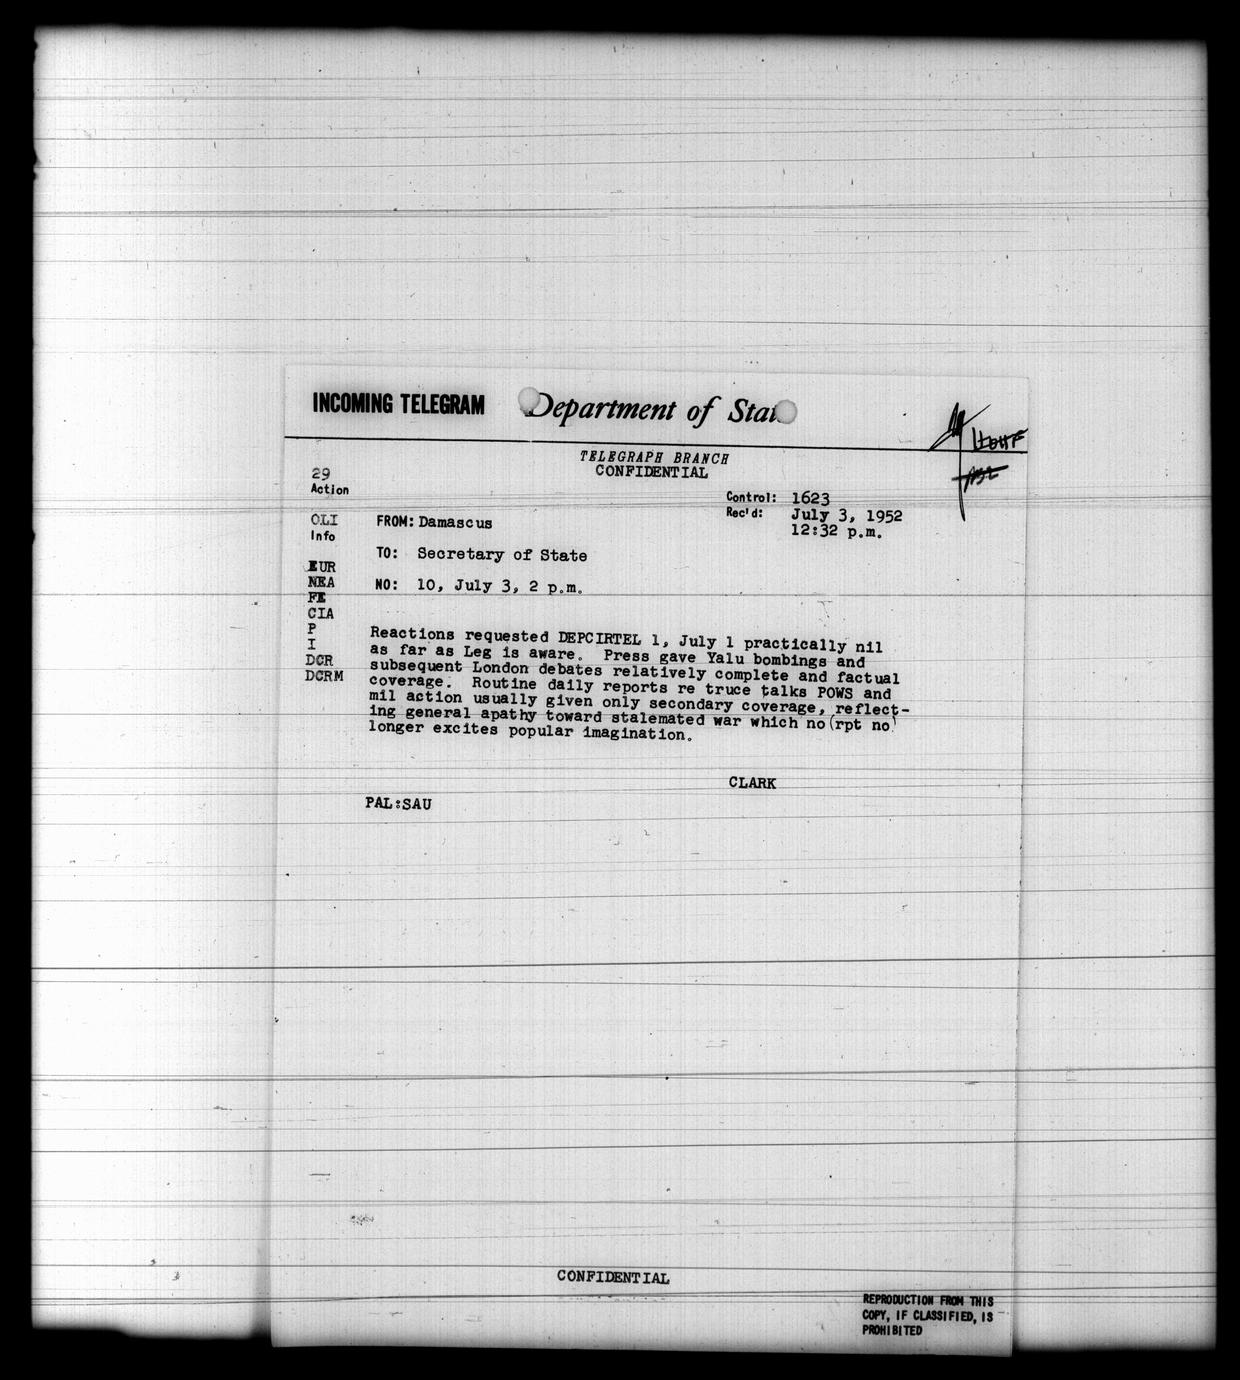 INCOMING TELEGRAM Department of Stat
TELEGRAPH BRANCH
CONFIDENTIAL
29
Action
Control: 1623
Rec'd: July 3, 1952
12:32 p.m.
OLI
Info
FROM: Damascus
TO: Secretary of State
EUR
NEA
FE
CIA
P
I
DCR
DCRM
NO: 10, July 3, 2 p.m.
Reactions requested DEPCIRTEL 1, July 1 practically nil
as far as Leg is aware. Press gave Yalu bombings and
subsequent London debates relatively complete and factual
coverage. Routine daily reports re truce talks POWS and
mil action usually given only secondary coverage, reflect-
ing general apathy toward stalemated war which no (rpt no)
longer excites popular imagination.
CLARK
PAL:SAU
CONFIDENTIAL
REPRODUCTION FROM THIS
COPY, IF CLASSIFIED, IS
PROHIBITED